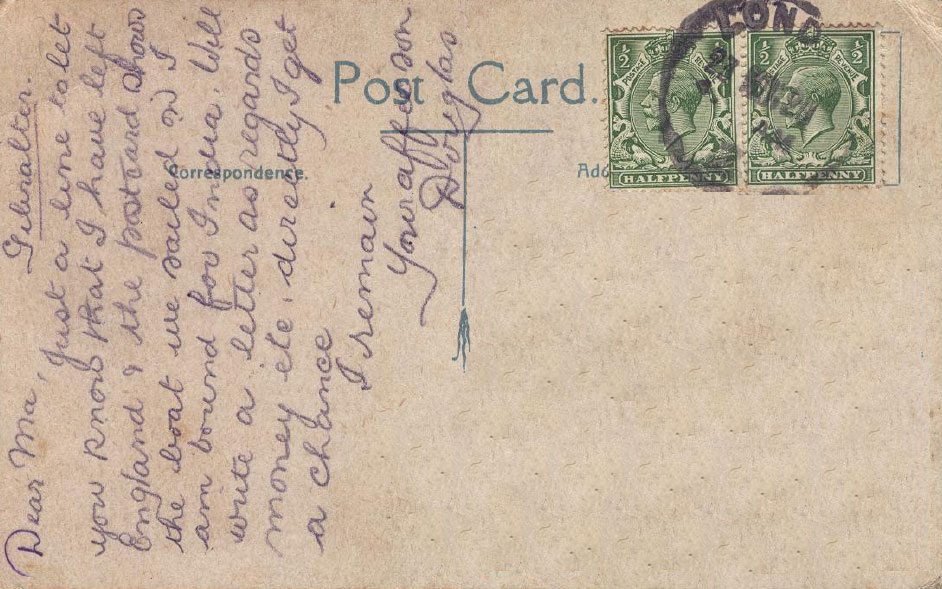 Post Card.
Correspondence.
Gibralter.
Dear Ma,
Just a line to let
you know that I have left
England & the postcard shows
the boat we sailed on I
am bound for India, Will
write a letter as regards
money etc, directly I get
a chance
I remain
Your aff son
Douglas
LOND
½ ½
POSTAGE REVENUE
HALFPENNY
½ ½
POSTAGE REVENUE
HALFPENNY